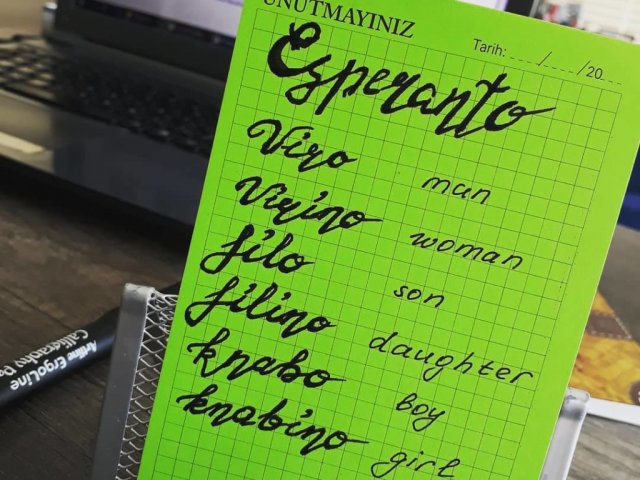 UNUTMAYINIZ
Tarih: ..../..../20....
Esperanto
Viro man
Virino woman
filo son
filino daughter
knabo boy
knabino girl
Artline ErgoLine
Calligraphy Pe